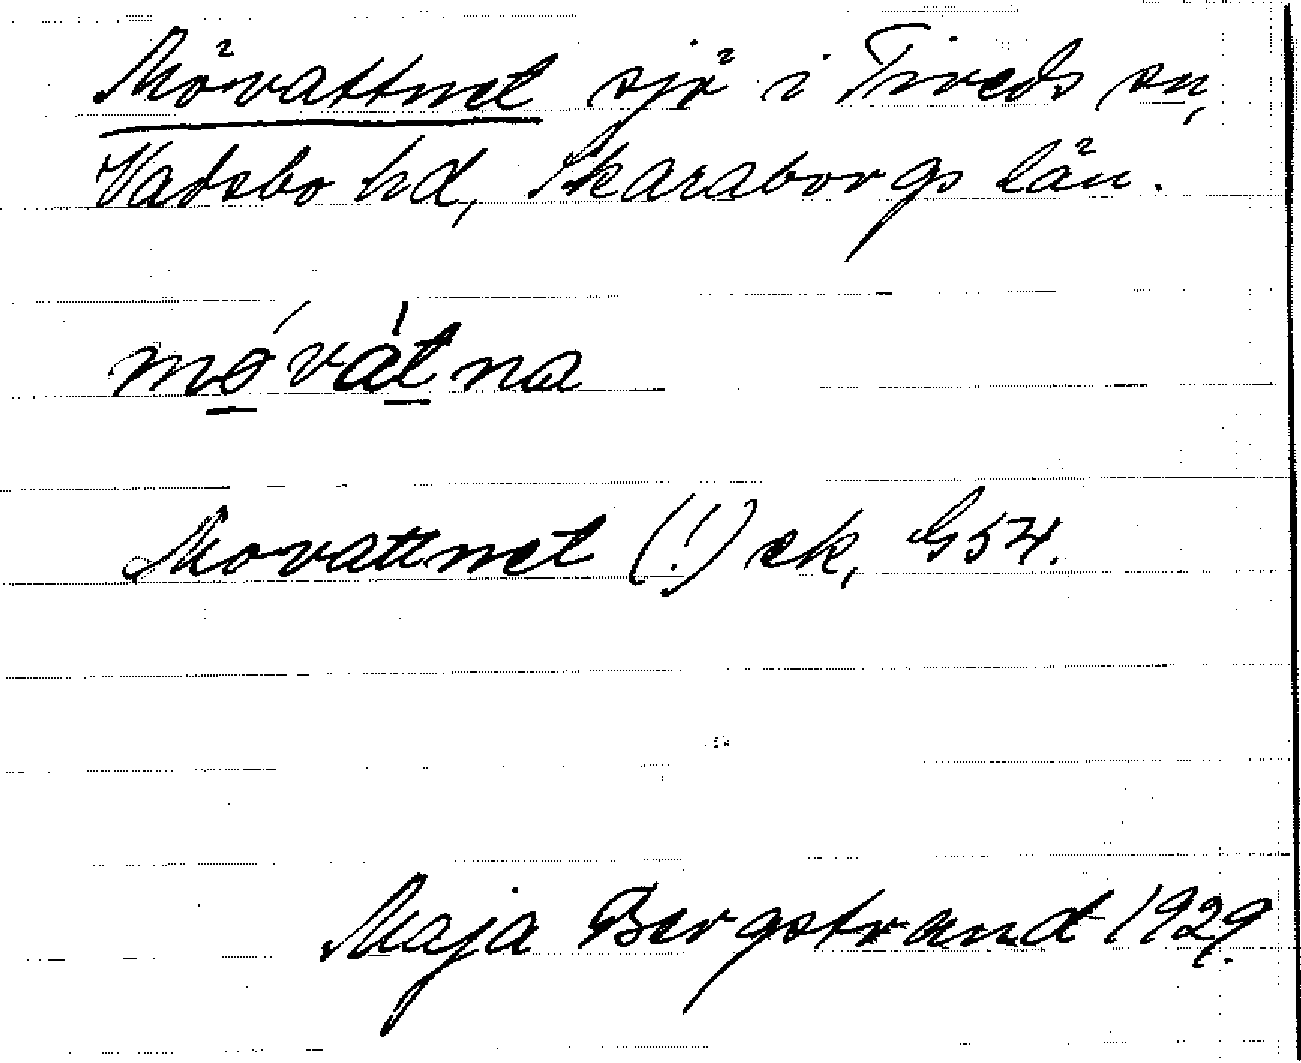 Mövattnet sjö i Tiveds sn,
Vadsbo hd, Skaraborgs län.
móvàtna
Movattnet (!) ek, G54.
Maja Bergstrand 1929.